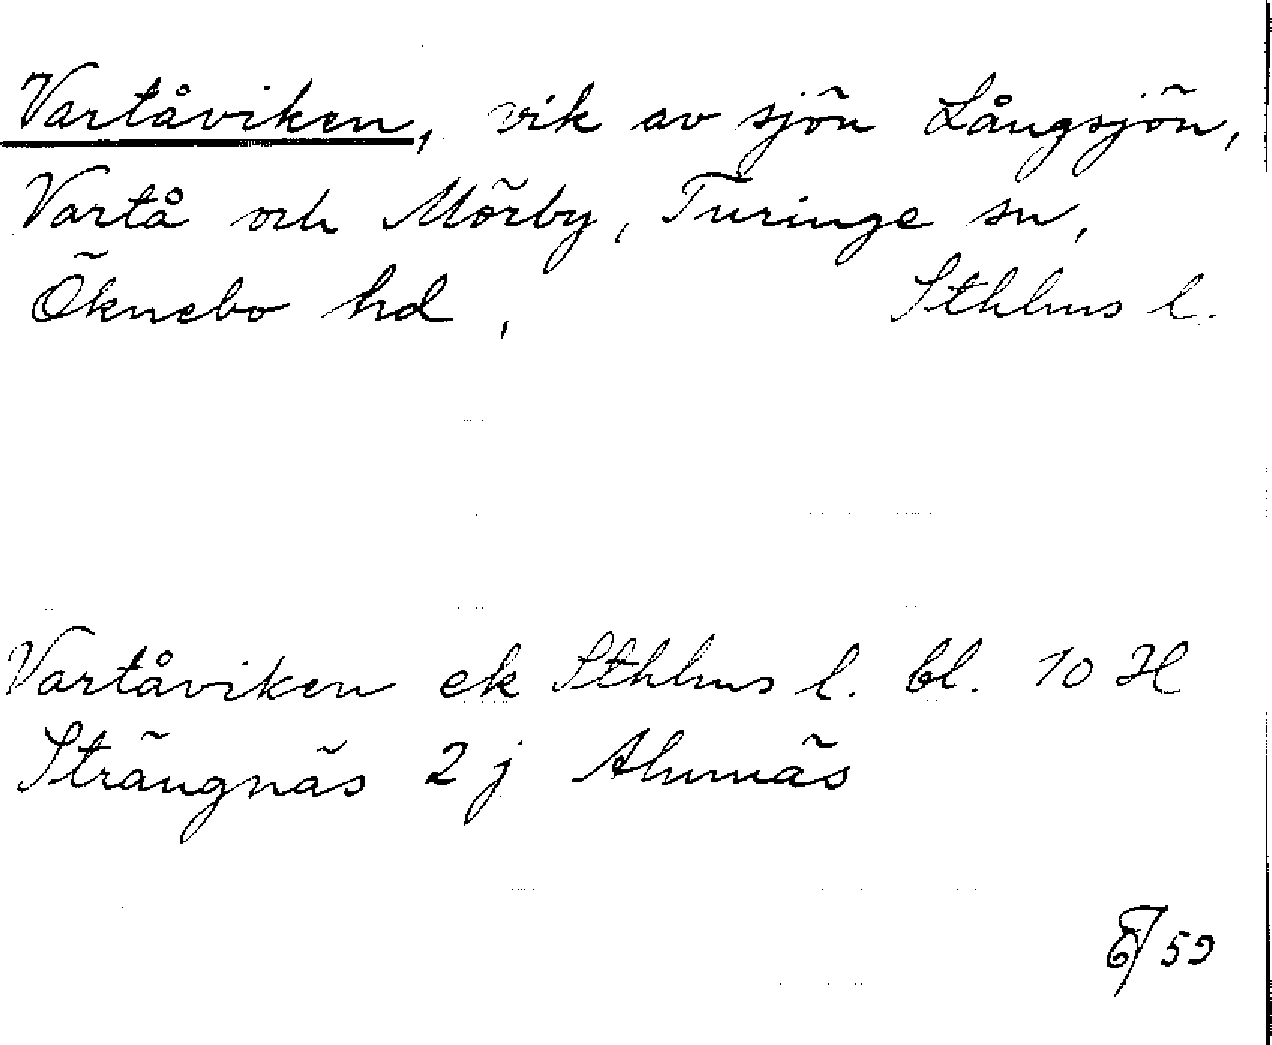 Vartåviken, vik av sjön Långsjön,
Vartå och Mörby, Turinge sn,
Öknebo hd, Sthlms l.
Vartåviken ek Sthlms l. bl. 10 H
Strängnäs 2 j Almnäs
59